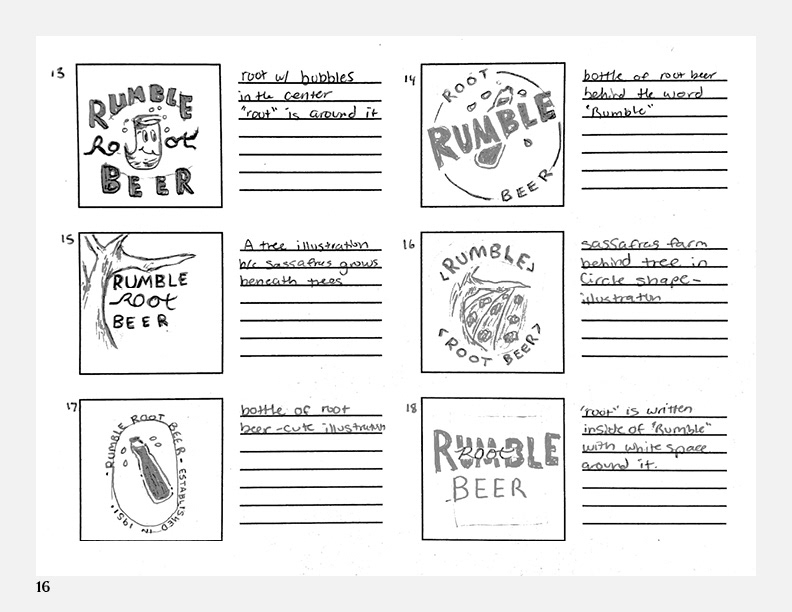 13
RUMBLE
Root
BEER
root w/ bubbles
in the center
"root" is around it
14
ROOT
RUMBLE
BEER
bottle of root beer
behind the word
"Rumble"
15
RUMBLE
root
BEER
A tree illustration
b/c sassafras grows
beneath trees
16
RUMBLE
ROOT BEER
sassafras farm
behind tree in
Circle shape-
illustration
17
RUMBLE ROOT BEER · ESTABLISHED IN 1951 ·
bottle of root
beer-cute illustration
18
RUMBLE
Root
BEER
"root" is written
inside of "Rumble"
with white space
around it.
16